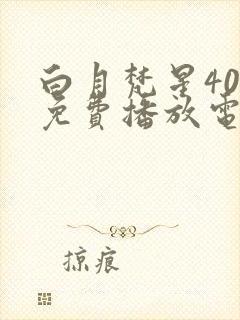 白月梵星40
免費播放電
掠痕